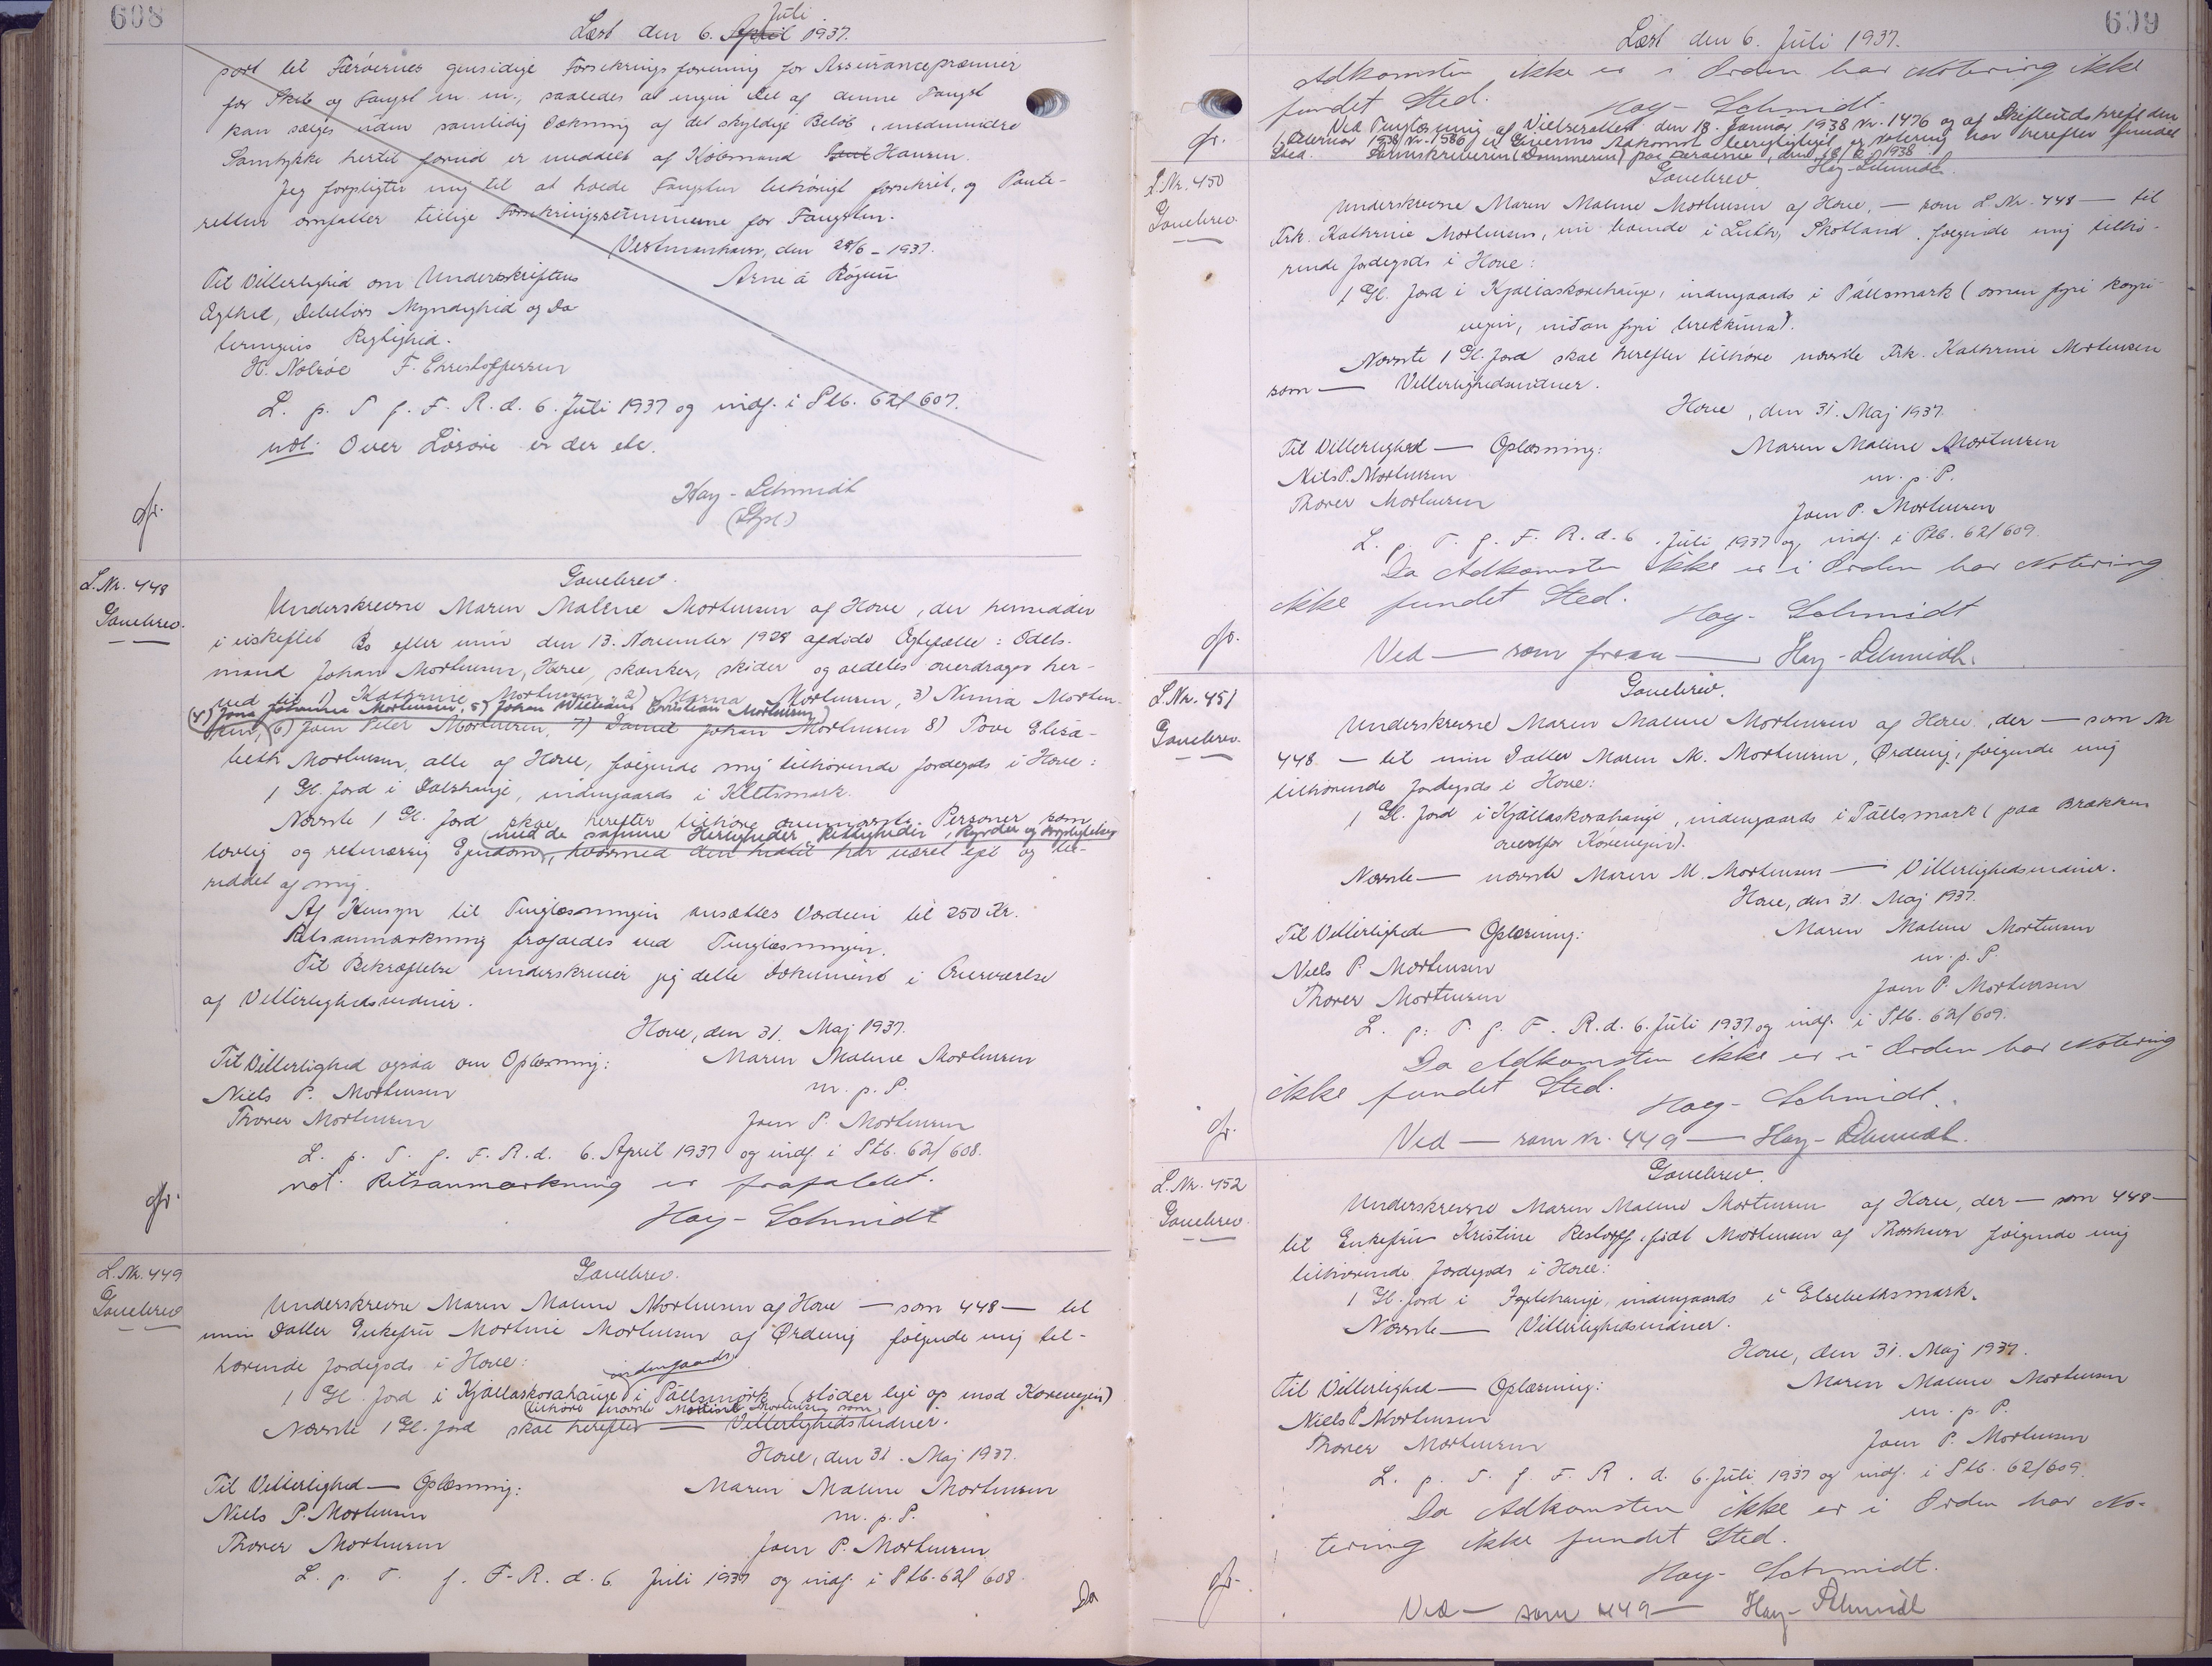 608
Læst den 6. April Juli 1937.
port til Færøernes gensidige Forsikringsforening for Assurancepræmier
for Skib og Fangst m. m., saaledes at ingen Del af denne Fangst
kan sælges uden samtidig Dækning af det skyldige Beløb, medmindre
Samtykke hertil forud er meddelt af Købmand Hansen.
Jeg forpligter mig til at holde Fangsten behørigt forsikret, og Pante-
retten omfatter tillige Forsikringssummerne for Fangsten.
Vestmanhavn, den 28/6 - 1937.
Til Vitterlighed om Underskriftens
Arne á Rógvu
Ægthed, Debitors Myndighed og Da
teringens Rigtighed.
H. Nolsöe F. Christoffersen
L. p. T. f. F. R. d. 6. Juli 1937 og indf. i Ptb. 62/607.
ndl. Over Løsøre er der etc.
Hay-Schmidt
L.Nr. 448
Gavebrev.
Gavebrev.
Underskrevne Maren Malene Mortensen af Hove, der hensidder
i uskiftet Bo efter min den 13. November 1928 afdøde Ægtefælle: Odels-
mand Johan Mortensen, Hove, skænker, skøder og aldeles overdrager her-
ved til 1) Kathrine Mortensen, 2) Marna Mortensen, 3) Ninna Morten-
(4) Jona Johanna Mortensen, 5) Johan William Christian Mortensen)
sen, 6) Joen Peter Mortensen, 7) Daniel Johan Mortensen 8) Tove Elisa-
beth Mortensen, alle af Hove, følgende mig tilhørende Jordegods i Hove:
1 Gl. Jord i Dalshauje, indengaards i Klettsmark.
Nævnte 1 Gl. Jord skal herefter tilhøre ovennævnte Personer som
(med de samme Herligheder, Rettigheder, Byrder og Forpligtelser
lovlig og retmæssig Ejendom, hvormed den hidtil har været ejet og be-
siddet af mig.
Af Hensyn til Tinglæsningen ansættes Værdien til 250 Kr.
Retsanmærkning frafaldes ved Tinglæsningen.
Til Bekræftelse underskriver jeg dette Dokument i Overværelse
af Vitterlighedsvidner.
Hove, den 31. Maj 1937.
Til Vitterlighed ogsaa om Oplæsning:
Maren Malene Mortensen
Niels P. Mortensen
m. p. P.
Thorer Mortensen
Joen P. Mortensen
L. p. T. f. F. R. d. 6. April 1937 og indf. i Ptb. 62/608.
not. Retsanmærkning er frafaldet.
Hay-Schmidt
L.Nr. 449
Gavebrev
Gavebrev.
Underskrevne Maren Malene Mortensen af Hove — som 448 — til
min Datter Enkefru Mortine Mortensen af Ørdevig følgende mig til-
hørende Jordegods i Hove:
indengaards
1 Gl. Jord i Kjállaskorahauje i Pállsmørk (støder lige op mod Korvegin)
(tilhøre nævnte Mortine Mortensen som
Nævnte 1 Gl. Jord skal herefter — Vitterlighedsvidner.
Hove, den 31. Maj 1937.
Til Vitterlighed — Oplæsning:
Maren Malene Mortensen
Niels P. Mortensen
m. p. P.
Thorer Mortensen
Joen P. Mortensen
L. p. T. f. F. R. d. 6. Juli 1937 og indf. i Ptb. 62/608.
Da
609
Læst den 6. Juli 1937.
Adkomsten ikke er i Orden har Notering ikke
fundet Sted.
Hay-Schmidt.
Ved Tinglæsning af Vielsesattest den 18. Januar 1938 Nr. 1476 og af Skifteudskrift den
Februar 1938 Nr. 1586 er Giverens Adkomst berigtiget, og Notering har herefter fundet
Sted. Sorenskriveren (Dommeren) paa Færøerne, den 18/2 1938
Hay-Schmidt.
L.Nr. 450
Gavebrev.
Gavebrev.
Underskrevne Maren Malene Mortensen af Hove, — som L.Nr. 448 — til
Frk. Kathrine Mortensen, nu boende i Leith, Skotland, følgende mig tilhø-
rende Jordegods i Hove:
1 Gl. Jord i Kjállaskorahauje, indengaards i Pállsmark (oman fyri korvi-
vegin, niðan fyri brekkuna).
Nævnte 1 Gl. Jord skal herefter tilhøre nævnte Frk. Kathrine Mortensen
som — Vitterlighedsvidner.
Hove, den 31. Maj 1937.
Til Vitterlighed — Oplæsning:
Maren Malene Mortensen
Niels P. Mortensen
m. p. P.
Thorer Mortensen
Joen P. Mortensen
L. p. T. f. F. R. d. 6. Juli 1937 og indf. i Ptb. 62/609.
Da Adkomsten ikke er i Orden har Notering
ikke fundet Sted.
Hay-Schmidt
Ved — som foran — Hay-Schmidt.
L.Nr. 451
Gavebrev.
Gavebrev.
Underskrevne Maren Malene Mortensen af Hove, der — som Nr
448 — til min Datter Maren M. Mortensen, Ørdevig, følgende mig
tilhørende Jordegods i Hove:
1 Gl. Jord i Kjállaskorahauje, indengaards i Pállsmark (paa Brækken
ovenfor Korvegin).
Nævnte — nævnte Maren M. Mortensen — Vitterlighedsvidner.
Hove, den 31. Maj 1937.
Til Vitterlighed — Oplæsning:
Maren Malene Mortensen
Niels P. Mortensen
m. p. P.
Thorer Mortensen
Joen P. Mortensen
L. p. T. f. F. R. d. 6. Juli 1937 og indf. i Ptb. 62/609.
Da Adkomsten ikke er i Orden har Notering
ikke fundet Sted.
Hay-Schmidt.
Ved — som Nr. 449 — Hay-Schmidt.
L.Nr. 452
Gavebrev.
Gavebrev.
Underskrevne Maren Malene Mortensen af Hove, der — som 448 —
til Enkefru Kristine Restorff, født Mortensen af Thorshavn følgende mig
tilhørende Jordegods i Hove:
1 Gl. Jord i indengaards i Elsebethsmark.
Nævnte — Vitterlighedsvidner.
Hove, den 31. Maj 1937.
Til Vitterlighed — Oplæsning:
Maren Malene Mortensen
Niels P. Mortensen
m. p. P.
Thorer Mortensen
Joen P. Mortensen
L. p. T. f. F. R. d. 6. Juli 1937 og indf. i Ptb. 62/609.
Da Adkomsten ikke er i Orden har No-
tering ikke fundet Sted.
Hay-Schmidt.
Ved — som 449 — Hay-Schmidt